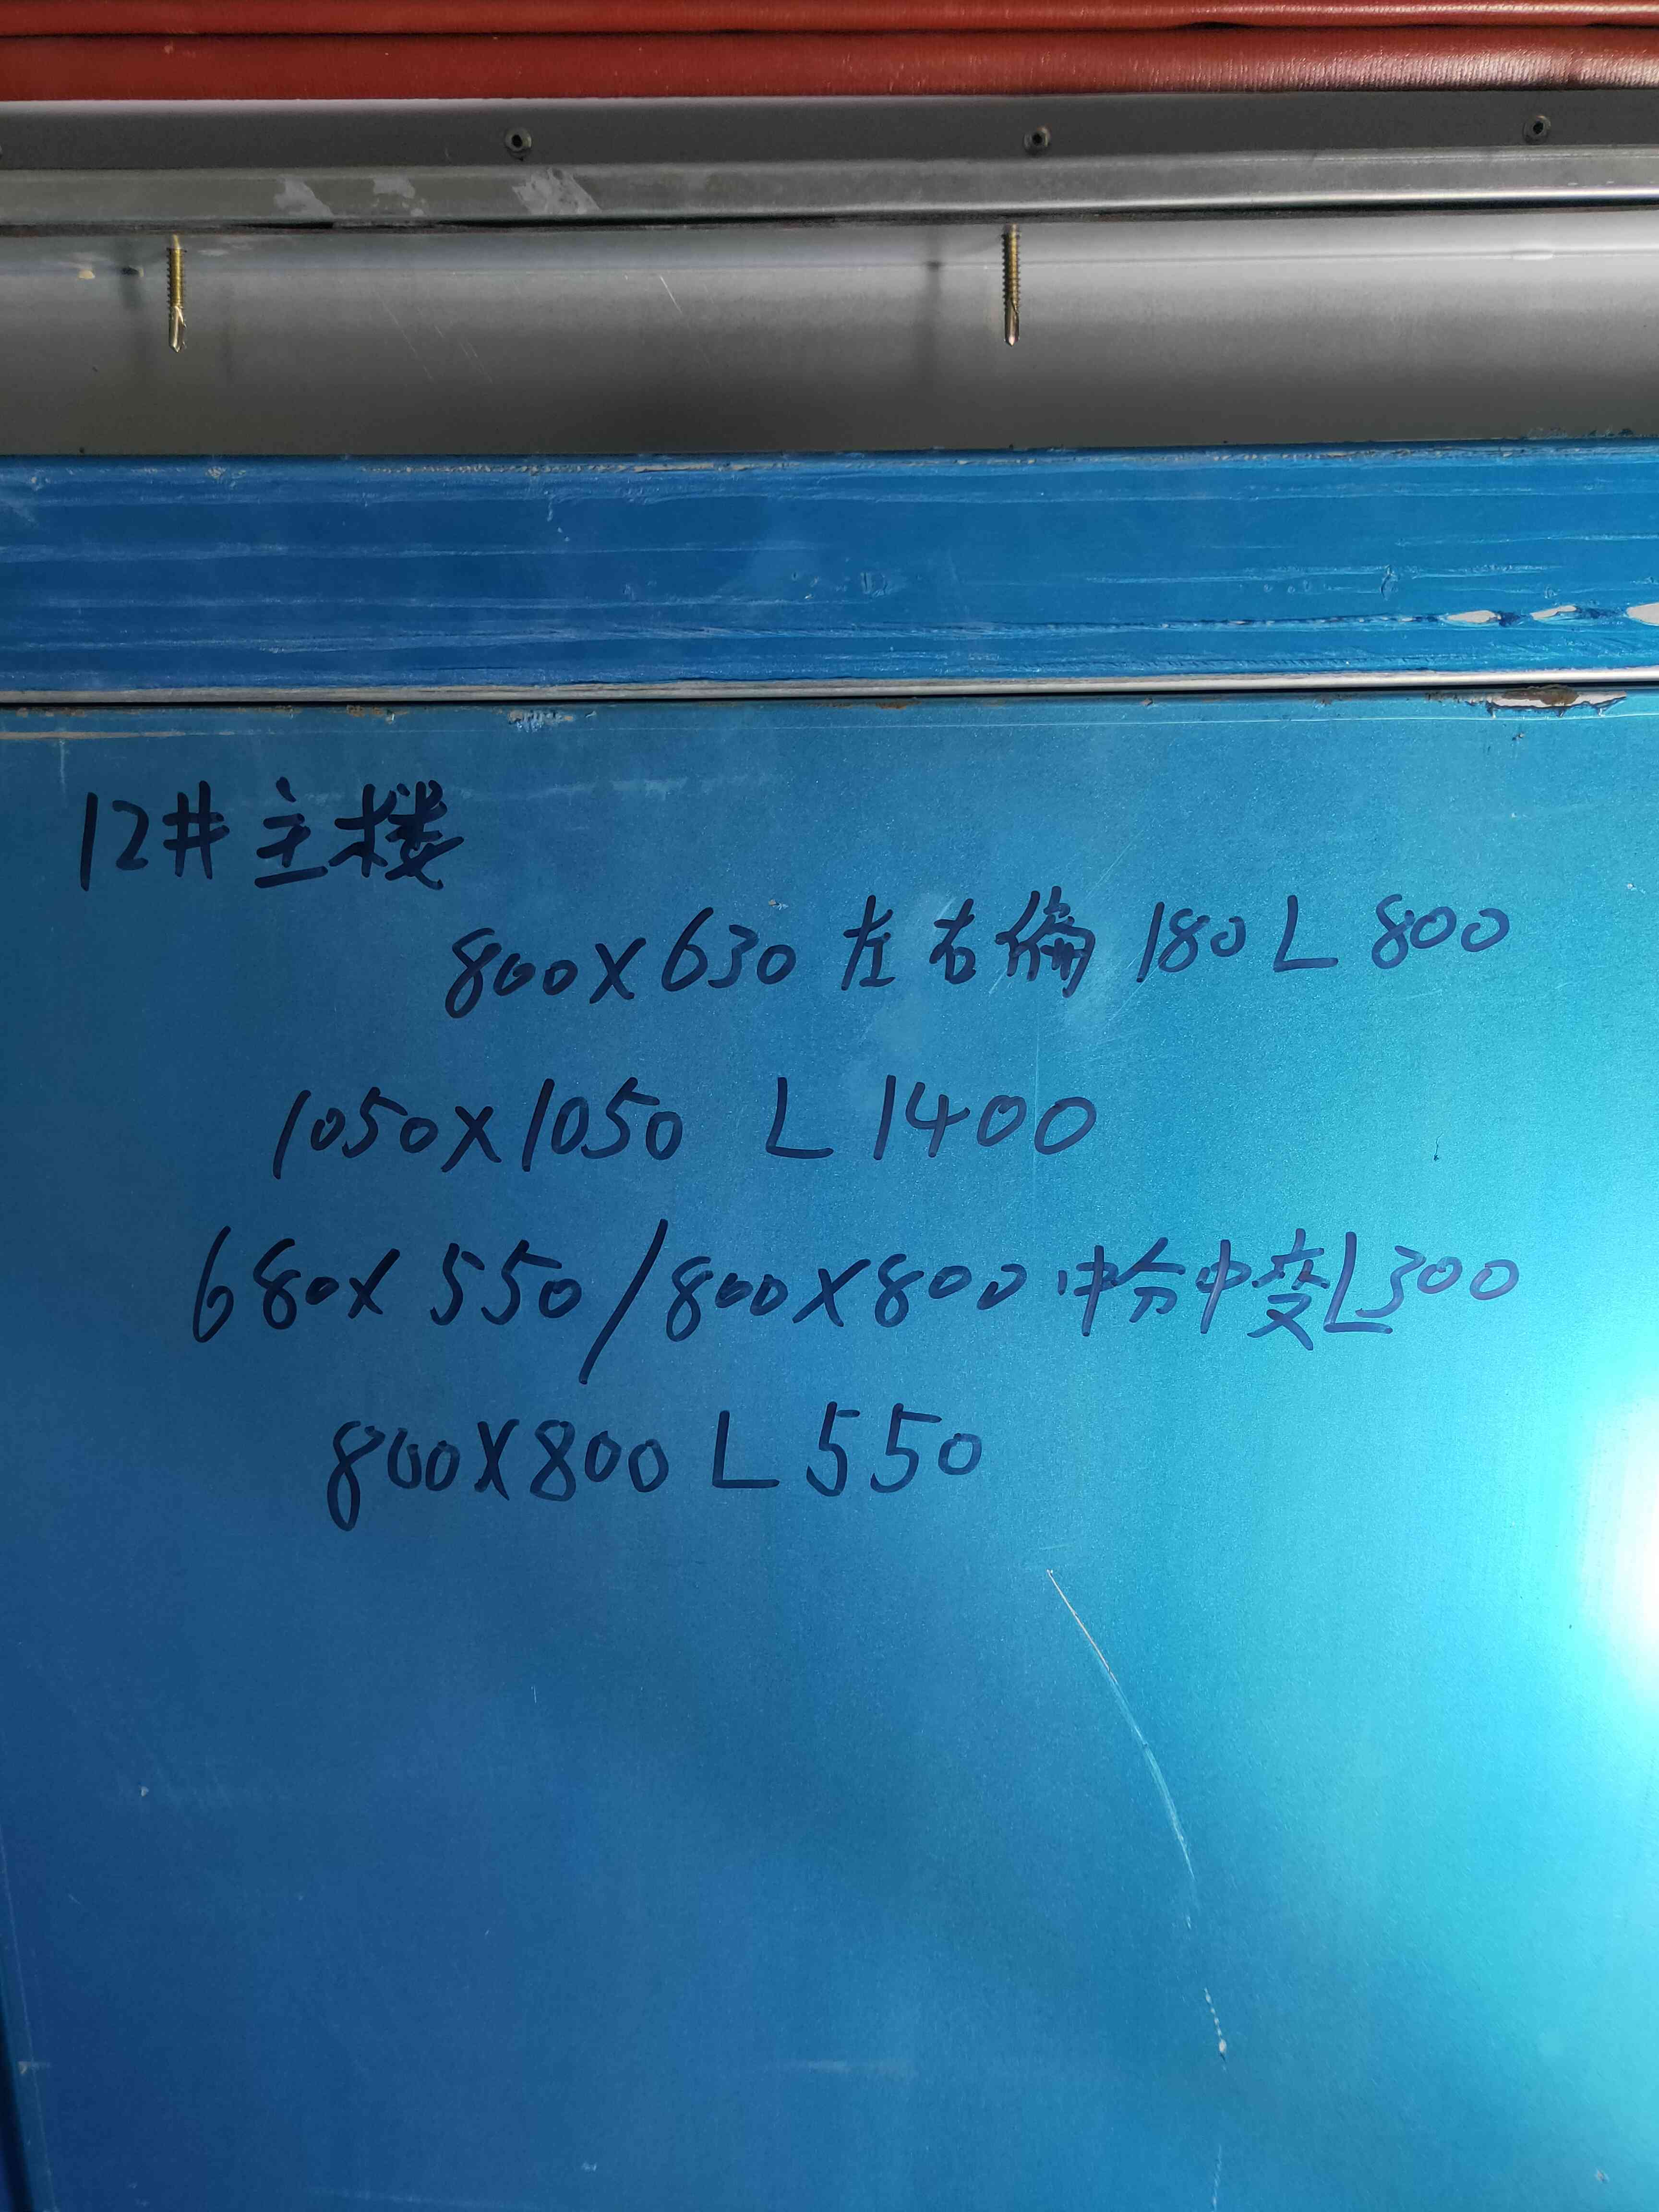 12井主楼
800X630 左右偏 180 L 800
1050X1050 L 1400
680X550/800X800 中分中变L300
800X800 L550